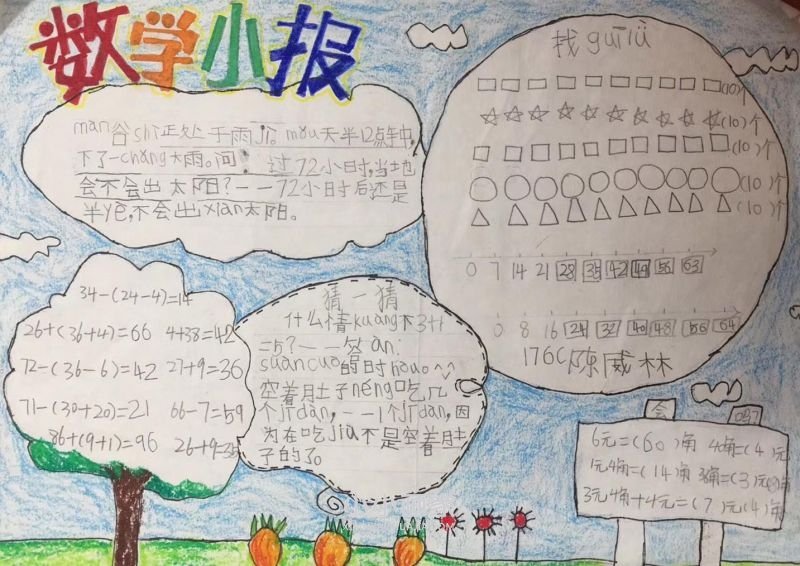 数学小报
man谷shī正处于雨jì。mǒu天半12点钟中,
下了一cháng大雨。问:过72小时,当地
会不会出太阳?——72小时后还是
半yè,不会出xiàn太阳。
找guīlǜ
(10)个
(10)个
(10)个
(10)个
(10)个
0 7 14 21 28 35 42 49 56 63
0 8 16 24 32 40 48 56 64
176C陈威林
34-(24-4)=14
26+(36+4)=66 4+38=42
72-(36-6)=42 27+9=36
71-(30+20)=21 66-7=59
86+(9+1)=96 26+9=35
猜一猜
什么情kuàng下3+1
=5?——答àn:
suàncuò的时hòu。
空着肚子néng吃几
个jīdàn,——1个jīdàn,因
为在吃jiù不是空着肚
子的了。
会 吗?
6元=(60)角 40角=(4)元
1元4角=(14)角
3元4角+4元=(7)元(4)角